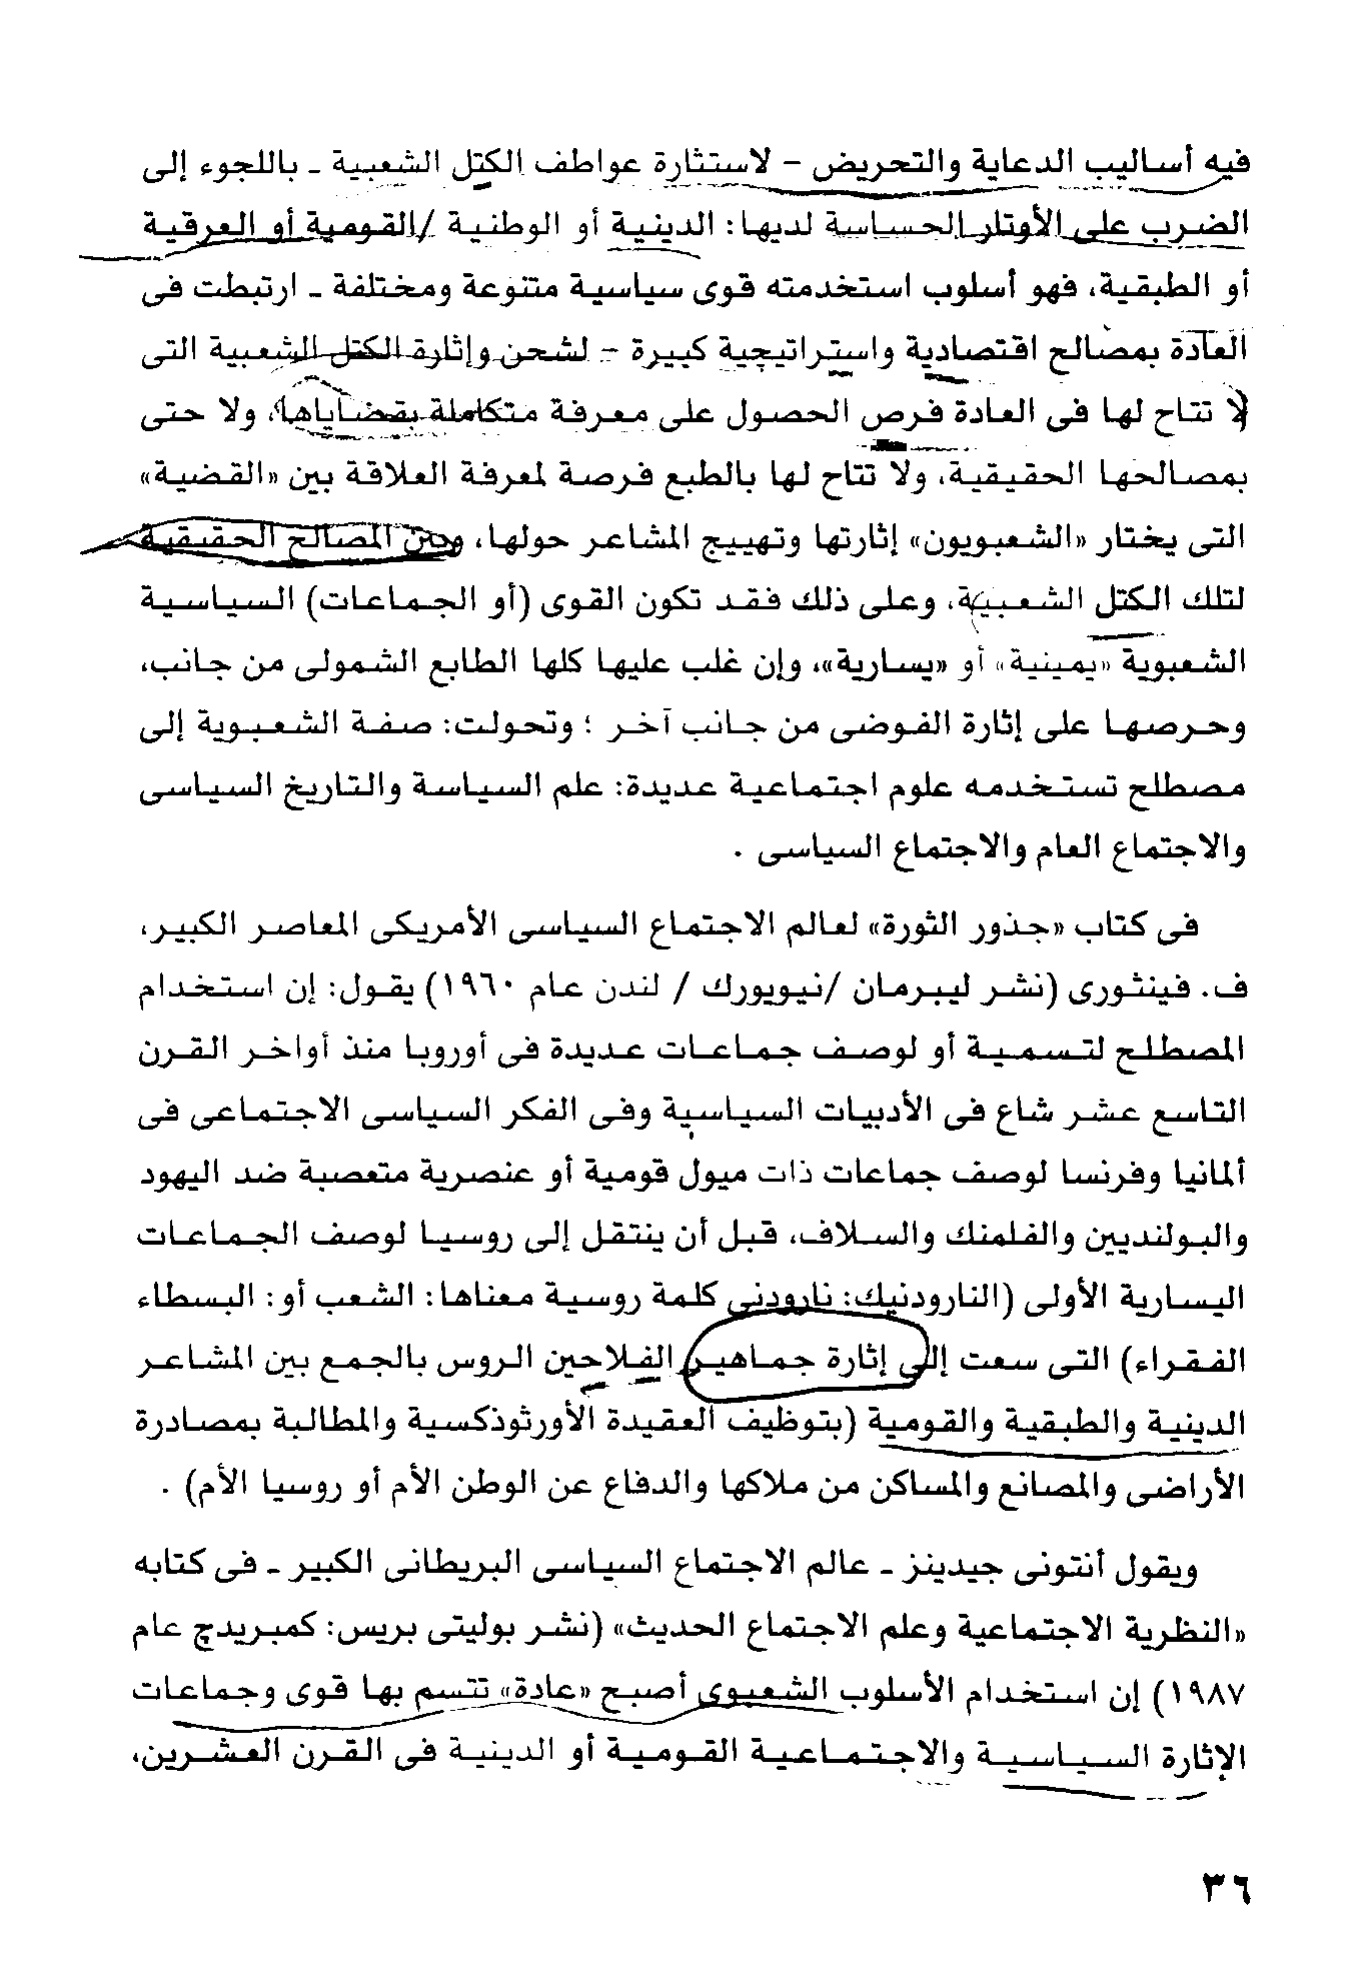 فيه أساليب الدعاية والتحريض - لاستثارة عواطف الكتل الشعبية - باللجوء إلى
الضرب على الأوتار الحساسة لديها: الدينية أو الوطنية /القومية أو العرقية
أو الطبقية، فهو أسلوب استخدمته قوى سياسية متنوعة ومختلفة - ارتبطت فى
العادة بمصالح اقتصادية واستراتيجية كبيرة - لشحن وإثارة الكتل الشعبية التى
لا تتاح لها فى العادة فرص الحصول على معرفة متكاملة بقضاياها، ولا حتى
بمصالحها الحقيقية، ولا تتاح لها بالطبع فرصة لمعرفة العلاقة بين «القضية»
التى يختار «الشعبويون» إثارتها وتهييج المشاعر حولها، وبين المصالح الحقيقية
لتلك الكتل الشعبية، وعلى ذلك فقد تكون القوى (أو الجماعات) السياسية
الشعبوية «يمينية» أو «يسارية»، وإن غلب عليها كلها الطابع الشمولى من جانب،
وحرصها على إثارة الفوضى من جانب آخر ؛ وتحولت: صفة الشعبوية إلى
مصطلح تستخدمه علوم اجتماعية عديدة: علم السياسة والتاريخ السياسى
والاجتماع العام والاجتماع السياسى .
فى كتاب «جذور الثورة» لعالم الاجتماع السياسى الأمريكى المعاصر الكبير،
ف. فينثورى (نشر ليبرمان /نيويورك / لندن عام ١٩٦٠) يقول: إن استخدام
المصطلح لتسمية أو لوصف جماعات عديدة فى أوروبا منذ أواخر القرن
التاسع عشر شاع فى الأدبيات السياسية وفى الفكر السياسى الاجتماعى فى
ألمانيا وفرنسا لوصف جماعات ذات ميول قومية أو عنصرية متعصبة ضد اليهود
والبولنديين والفلمنك والسلاف، قبل أن ينتقل إلى روسيا لوصف الجماعات
اليسارية الأولى (النارودنيك: نارودنى كلمة روسية معناها: الشعب أو: البسطاء
الفقراء) التى سعت إلى إثارة جماهير الفلاحين الروس بالجمع بين المشاعر
الدينية والطبقية والقومية (بتوظيف العقيدة الأورثوذكسية والمطالبة بمصادرة
الأراضى والمصانع والمساكن من ملاكها والدفاع عن الوطن الأم أو روسيا الأم) .
ويقول أنتونى جيدينز - عالم الاجتماع السياسى البريطانى الكبير - فى كتابه
«النظرية الاجتماعية وعلم الاجتماع الحديث» (نشر بوليتى بريس: كمبريدج عام
١٩٨٧) إن استخدام الأسلوب الشعبوى أصبح «عادة» تتسم بها قوى وجماعات
الإثارة السياسية والاجتماعية القومية أو الدينية فى القرن العشرين،
٣٦